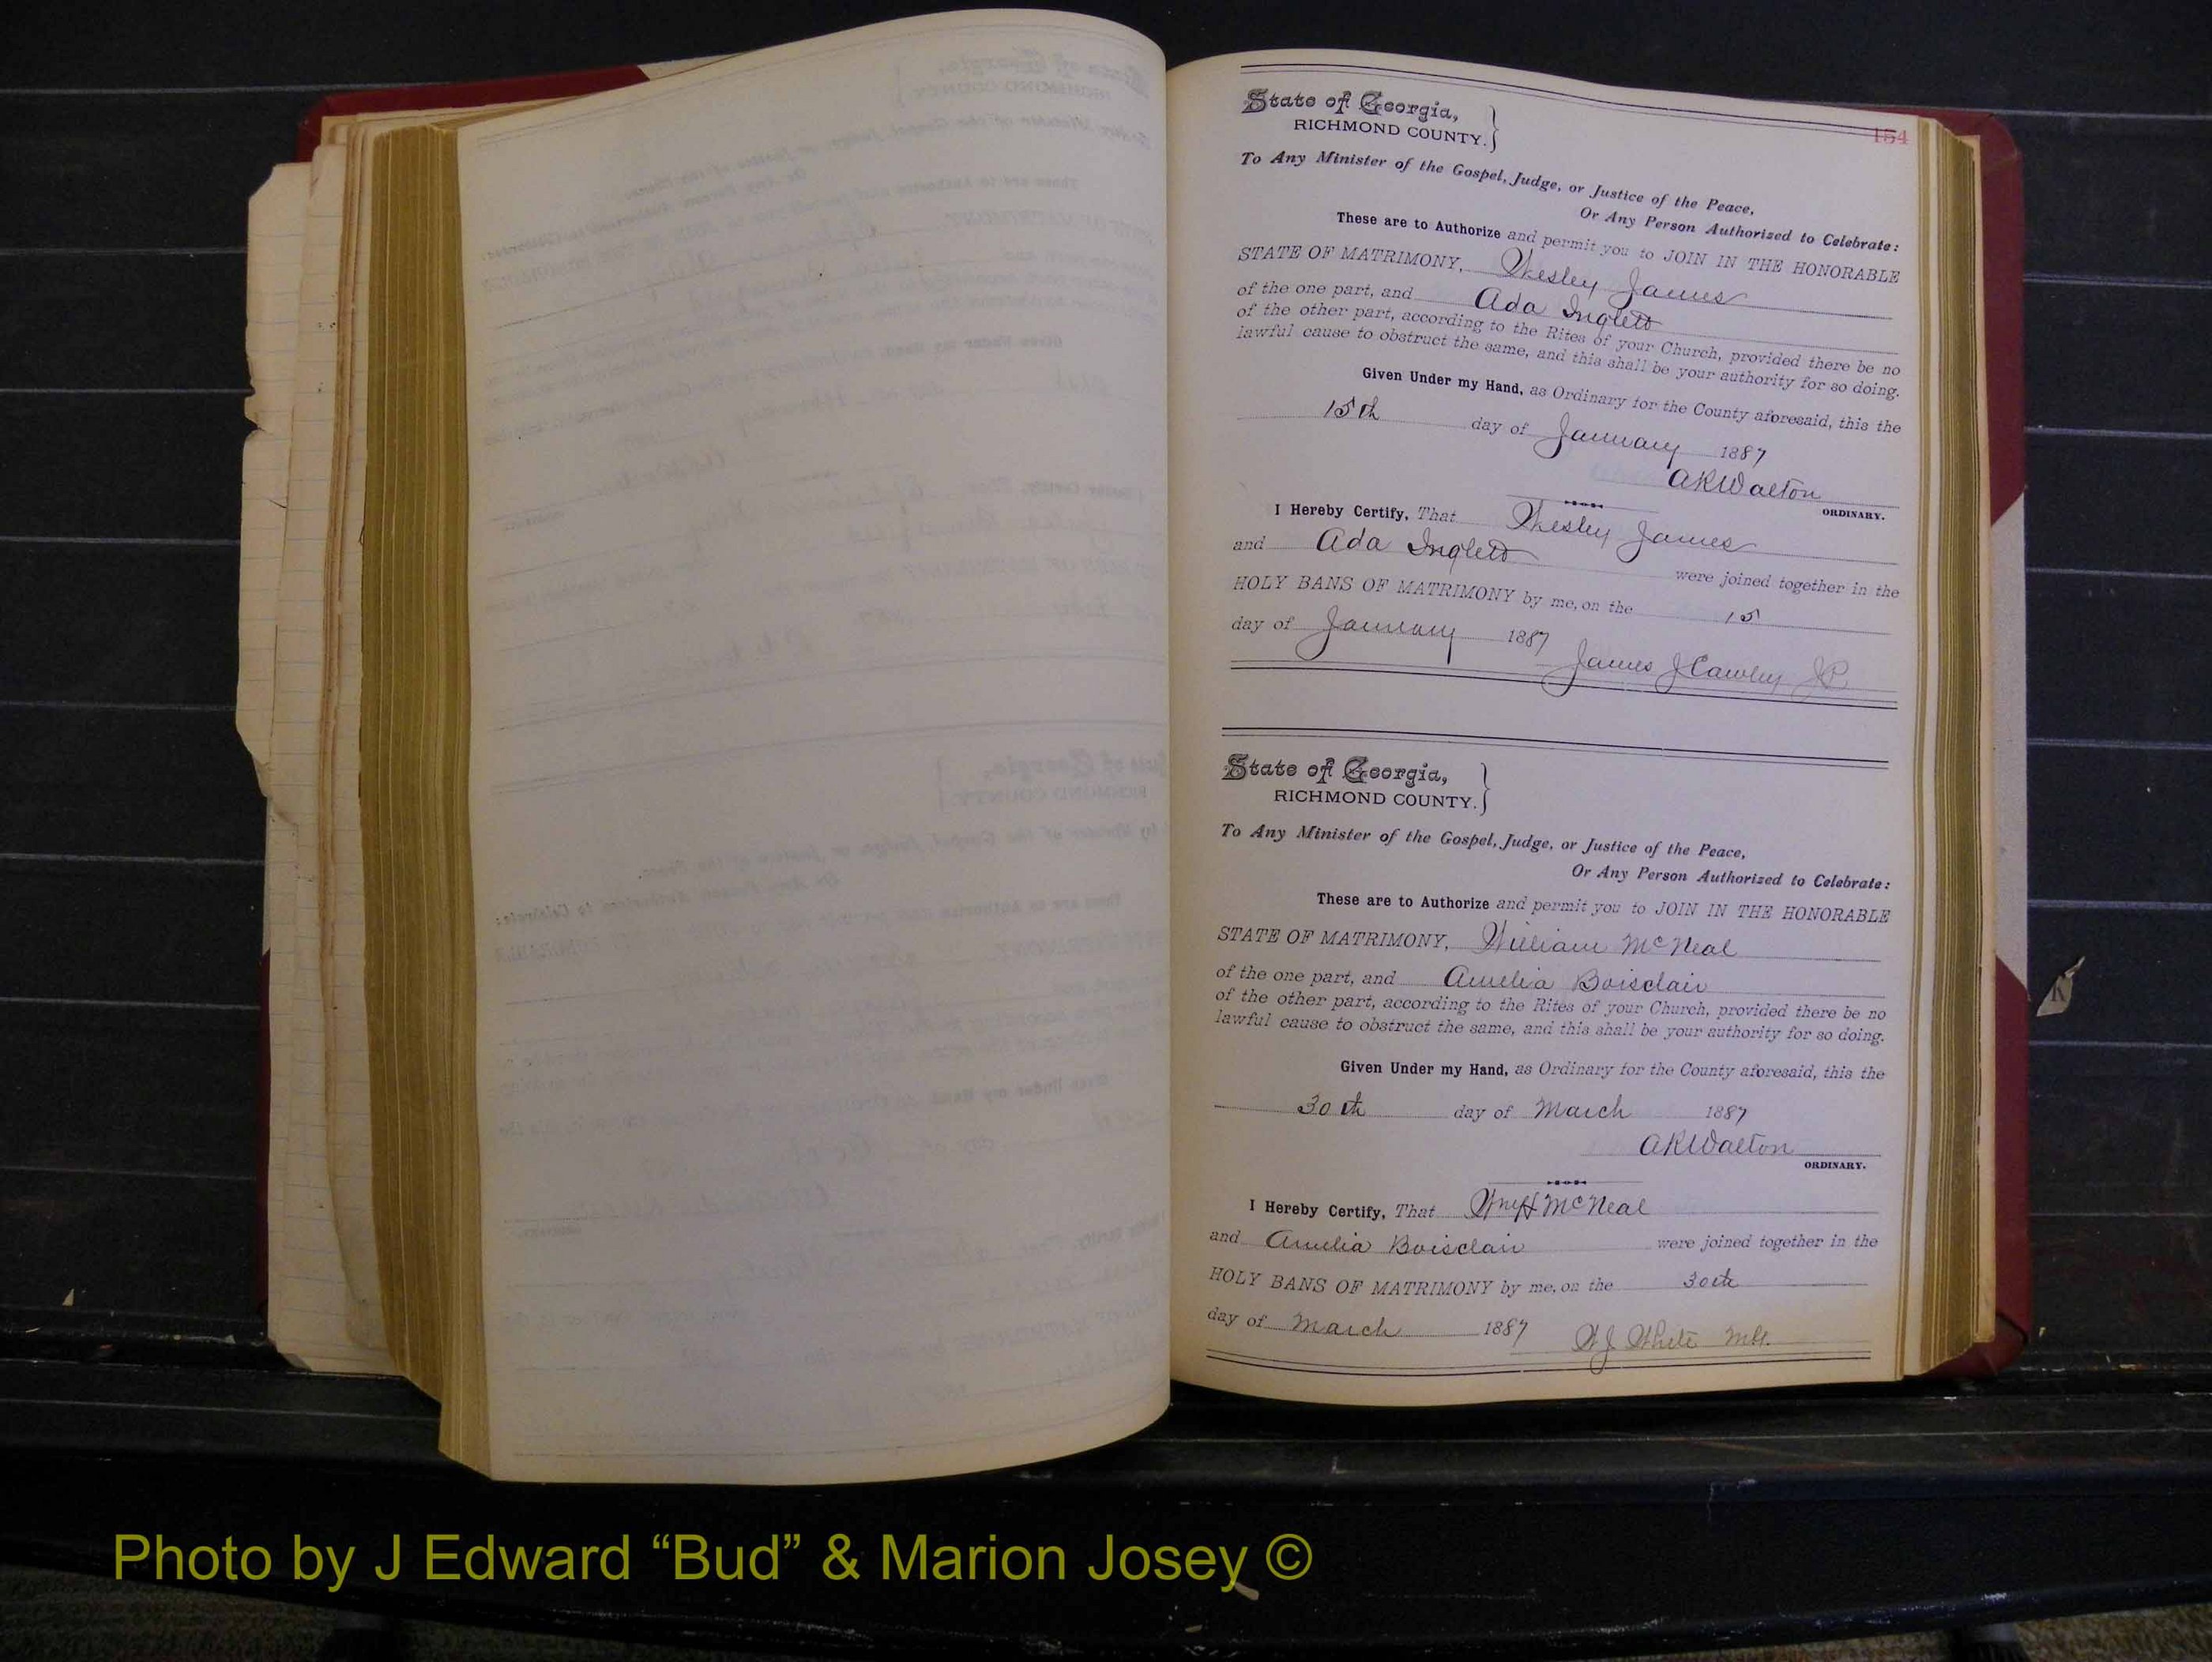 154
State of Georgia,
RICHMOND COUNTY.
To Any Minister of the Gospel, Judge, or Justice of the Peace,
Or Any Person Authorized to Celebrate:
These are to Authorize and permit you to JOIN IN THE HONORABLE
STATE OF MATRIMONY, Wesley James
of the one part, and Ada Inglett
of the other part, according to the Rites of your Church, provided there be no
lawful cause to obstruct the same, and this shall be your authority for so doing.
Given Under my Hand, as Ordinary for the County aforesaid, this the
15th day of January 1887
A R Walton
ORDINARY.
I Hereby Certify, That Wesley James
and Ada Inglett were joined together in the
HOLY BANS OF MATRIMONY by me, on the 15
day of January 1887
James J Cawley JP
State of Georgia,
RICHMOND COUNTY.
To Any Minister of the Gospel, Judge, or Justice of the Peace,
Or Any Person Authorized to Celebrate:
These are to Authorize and permit you to JOIN IN THE HONORABLE
STATE OF MATRIMONY, William McNeal
of the one part, and Amelia Boisclair
of the other part, according to the Rites of your Church, provided there be no
lawful cause to obstruct the same, and this shall be your authority for so doing.
Given Under my Hand, as Ordinary for the County aforesaid, this the
30th day of March 1887
A R Walton
ORDINARY.
I Hereby Certify, That Wm H McNeal
and Amelia Boisclair were joined together in the
HOLY BANS OF MATRIMONY by me, on the 30th
day of March 1887 W J White
Photo by J Edward “Bud” & Marion Josey ©